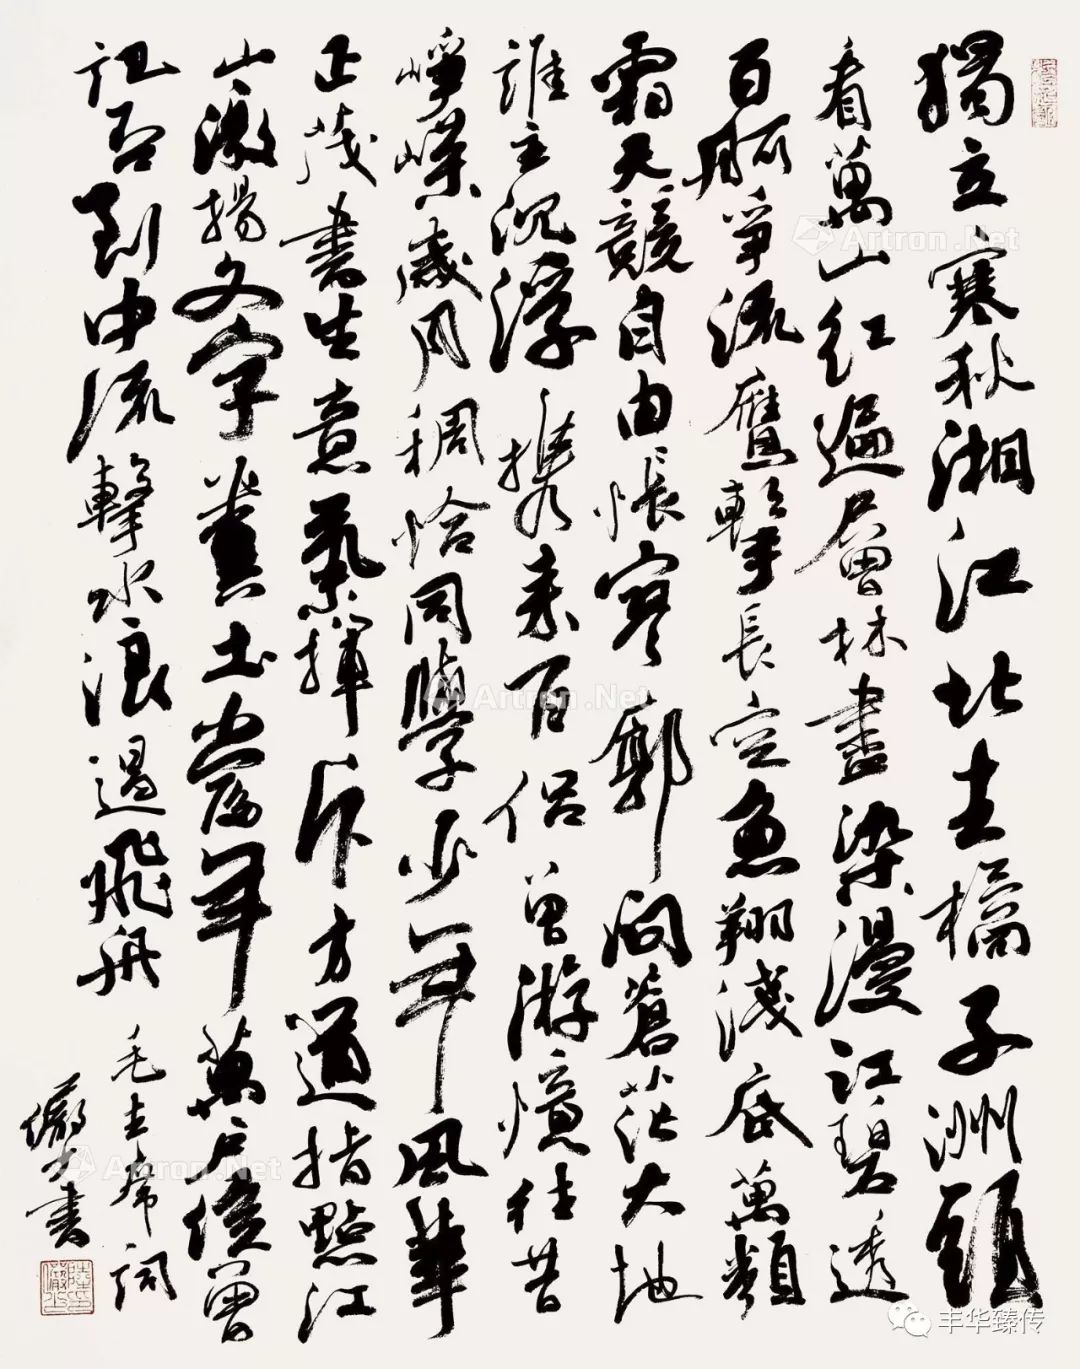 獨立寒秋湘江北去橘子洲頭
看萬山紅遍層林盡染漫江碧透
百舸爭流鷹擊長空魚翔淺底萬類
霜天競自由悵寥廓問蒼茫大地
誰主沉浮攜來百侶曾游憶往昔
崢嶸歲月稠恰同學少年風華
正茂書生意氣揮斥方遒指點江
山激揚文字糞土當年萬戶侯曾
記否到中流擊水浪遏飛舟
毛主席詞
儼少書
Artron.Net
Artron.Net
Artron.Net
丰华臻传